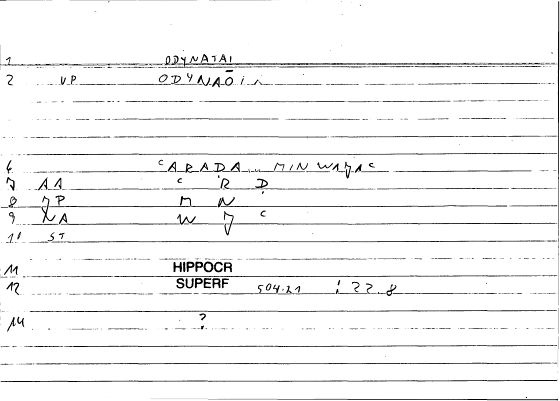 1 ODYNATAI
2 VP ODYNAŌ
6 ʿARAḌA... MIN WAǦAʿ
7 AA ʿ R Ḍ
8 ǦP M N
9 NA W Ǧ ʿ
10 ST
11 HIPPOCR
12 SUPERF 504.21 : 22.8
14 ?